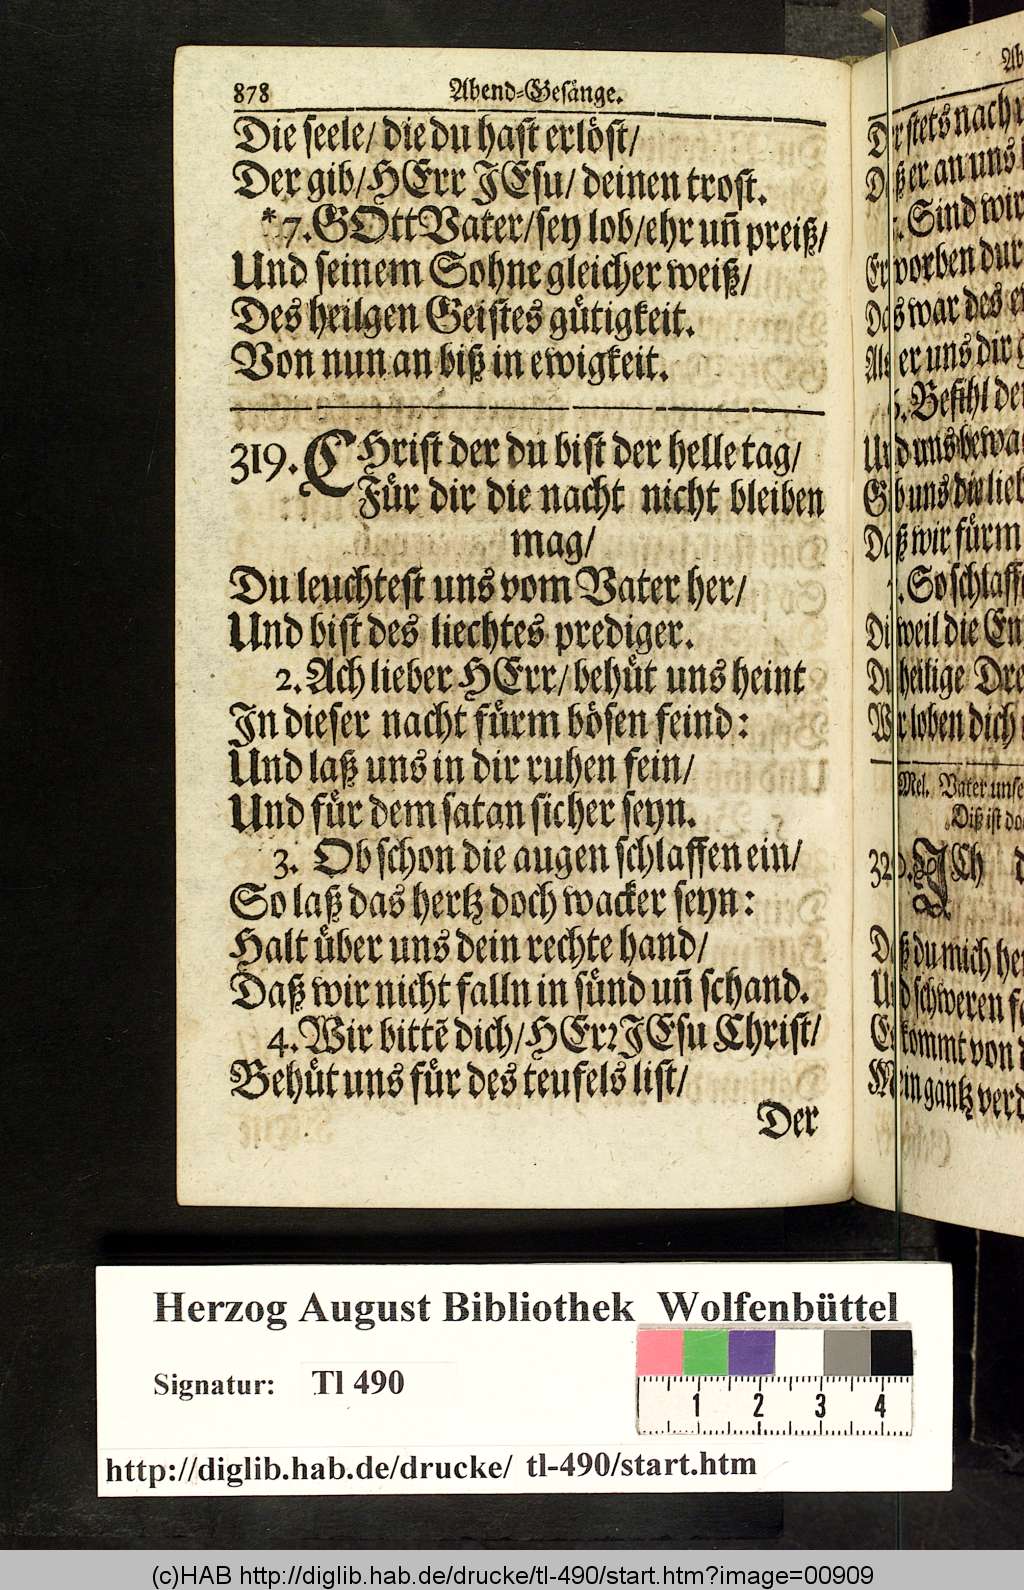 878 Abend-Gesänge.
Die seele/ die du hast erlöst/
Der gib/ HErr JEsu/ deinen trost.
*7. GOtt Vater/ sey lob/ ehr uñ preiß/
Und seinem Sohne gleicher weiß/
Des heilgen Geistes gütigkeit.
Von nun an biß in ewigkeit.
319. CHrist der du bist der helle tag/
Für dir die nacht nicht bleiben
mag/
Du leuchtest uns vom Vater her/
Und bist des liechtes prediger.
2. Ach lieber HErr/ behüt uns heint
In dieser nacht fürm bösen feind:
Und laß uns in dir ruhen fein/
Und für dem satan sicher seyn.
3. Ob schon die augen schlaffen ein/
So laß das hertz doch wacker seyn:
Halt über uns dein rechte hand/
Daß wir nicht falln in sünd uñ schand.
4. Wir bittẽ dich/ HErr JEsu Christ/
Behüt uns für des teufels list/
Der
stets nach
er an uns
Sind wir
war des
er uns dir
Befihl
uns die
wir fürm
So schlaff
weil die
heilige
loben dich
Mel. Vater unse
Diß ist
ICH
du mich
schweren
kommt von
gantz
Herzog August Bibliothek Wolfenbüttel
Signatur: Tl 490
1 2 3 4
http://diglib.hab.de/drucke/ tl-490/start.htm
(c)HAB http://diglib.hab.de/drucke/tl-490/start.htm?image=00909